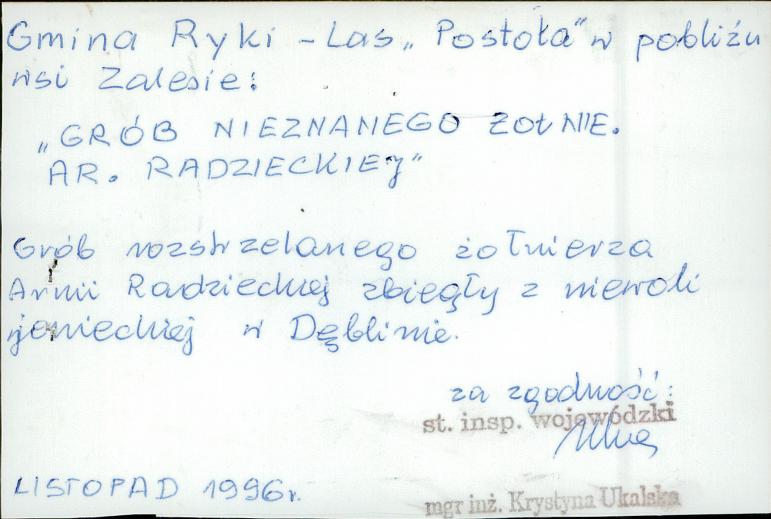 Gmina Ryki - Las „Postoła" w pobliżu
wsi Zalesie:
„GRÓB NIEZNANEGO ŻOŁNIE.
AR. RADZIECKIEJ"
Grób rozstrzelanego żołnierza
Armii Radzieckiej zbiegły z niewoli
jenieckiej w Dęblinie.
za zgodność:
st. insp. wojewódzki
mgr inż. Krystyna Ukalska
LISTOPAD 1996r.